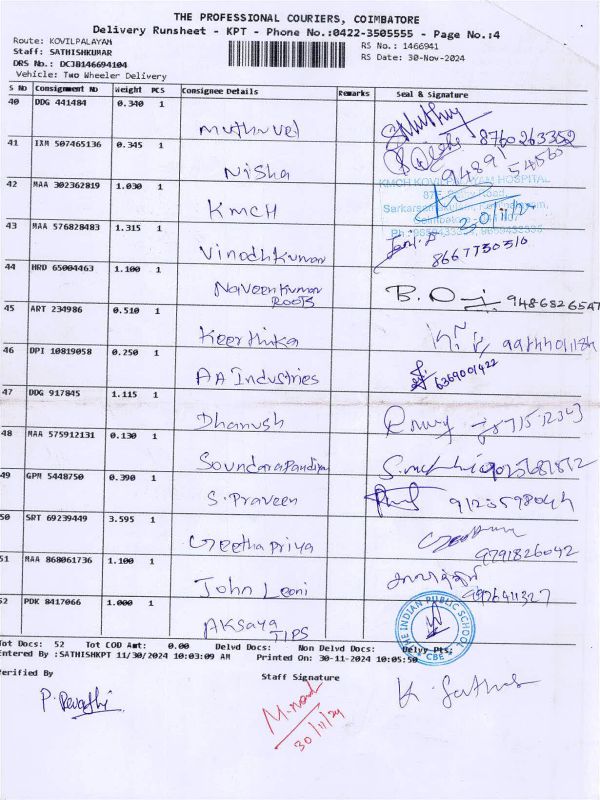 THE PROFESSIONAL COURIERS, COIMBATORE
Delivery Runsheet - KPT - Phone No.:0422-3505555 - Page No.:4
Route: KOVILPALAYAM
RS No.: 1466941
Staff: SATHISHKUMAR
RS Date: 30-Nov-2024
DRS No.: DCJB146694104
Vehicle: Two Wheeler Delivery
S No Consignment No Weight PCS Consignee Details Remarks Seal & Signature
40 DDG 441484 0.340 1
Muthuvel
8760263352
41 IXM 507465136 0.345 1
Nisha
9489-54560
42 MAA 302362819 1.030 1
KMCH
KMCH KOVILPALAYAM HOSPITAL
30/11/24
43 MAA 576828483 1.315 1
Vinodhkumar
8667730516
44 HRD 65004463 1.100 1
Naveenkumar
ROOTS
45 ART 234986 0.510 1
Keerthika
46 DPI 10819058 0.250 1
AA Industries
6369001422
47 DDG 917845 1.115 1
Dhanush
48 MAA 575912131 0.130 1
Soundarapandiyan
49 GPM 5448750 0.390 1
S. Praveen
50 SRT 69239449 3.595 1
Geetha priya
9791826042
51 MAA 868061736 1.100 1
John Leoni
9976411327
52 PDK 8417066 1.000 1
AKSaya
TIPS
THE INDIAN PUBLIC SCHOOL
CBE
Tot Docs: 52 Tot COD Amt: 0.00 Delvd Docs: Non Delvd Docs: Delvy Pts:
Entered By :SATHISHKPT 11/30/2024 10:03:09 AM Printed On: 30-11-2024 10:05:50
Verified By
Staff Signature
P. Revathi
30/11/24